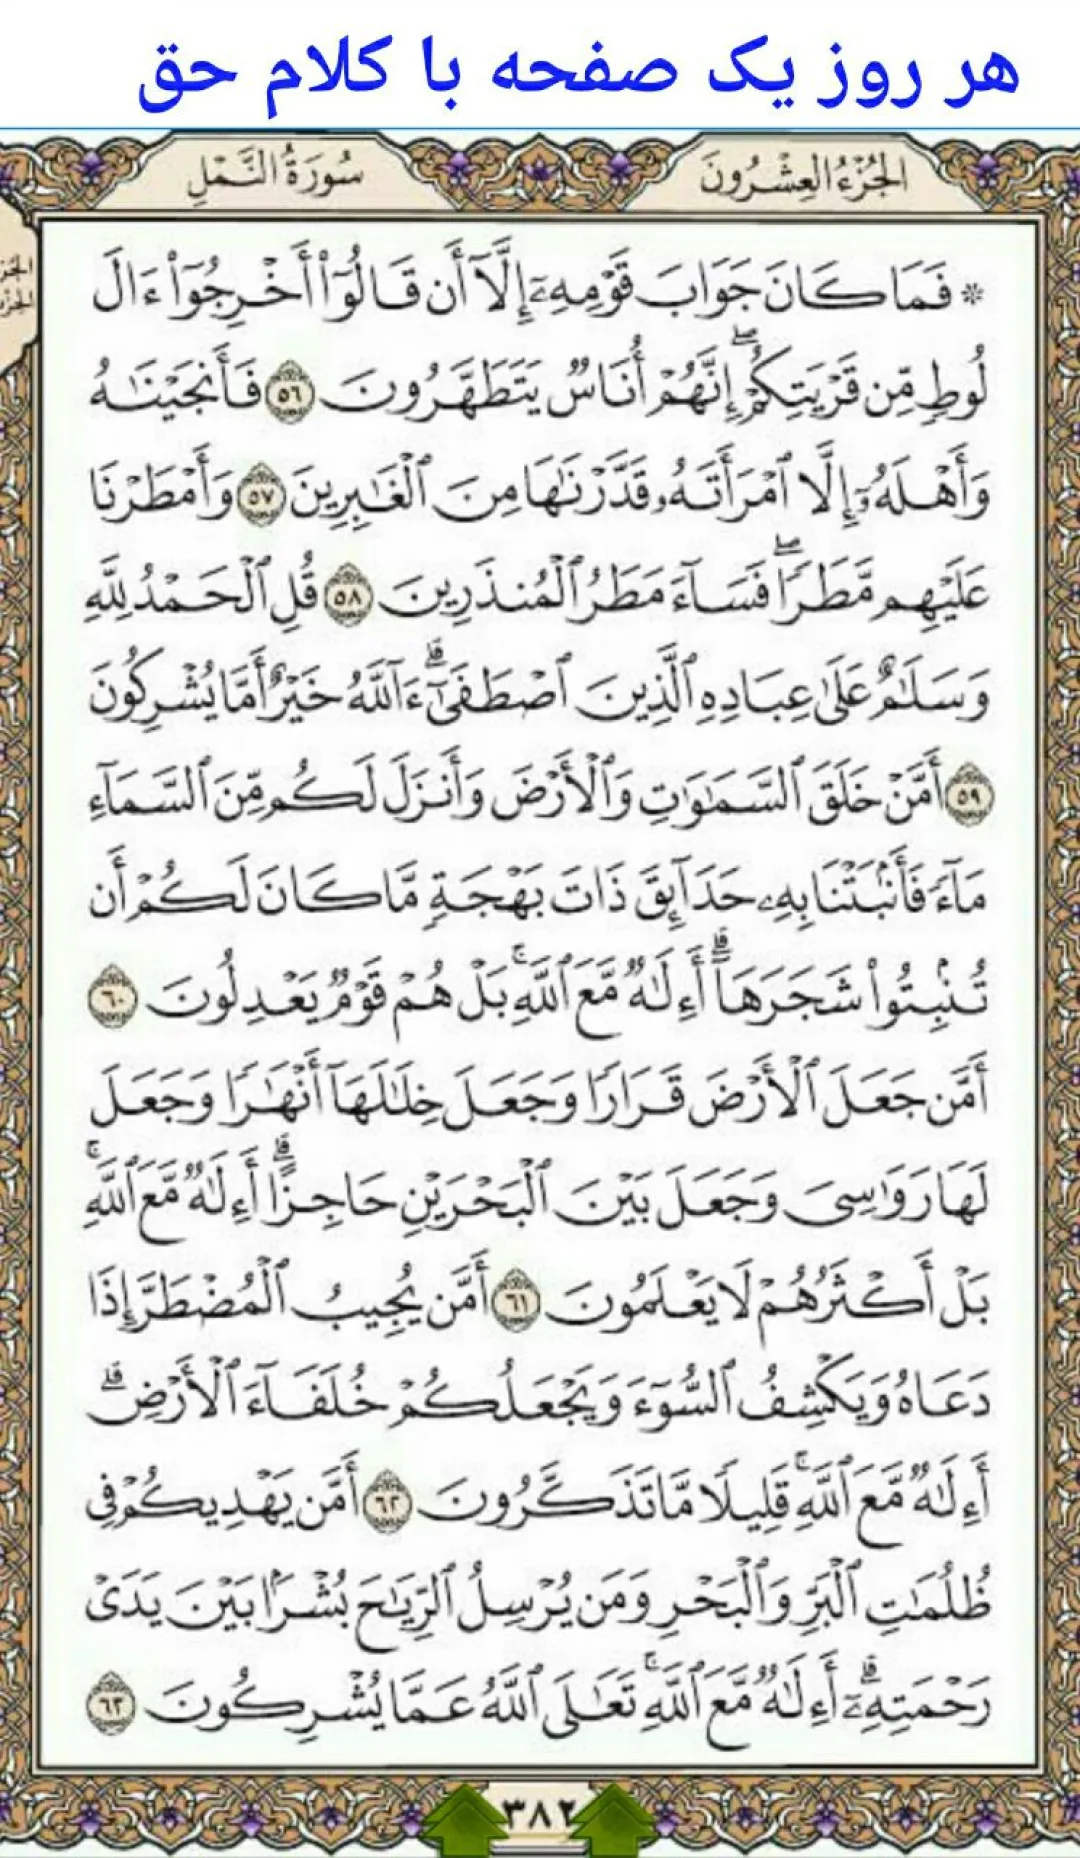 هر روز یک صفحه با کلام حق
الجُزْءُ العِشْرُونَ
سُورَةُ النَّمْلِ
۞ فَمَا كَانَ جَوَابَ قَوْمِهِۦٓ إِلَّآ أَن قَالُوٓا۟ أَخْرِجُوٓا۟ ءَالَ
لُوطٍ مِّن قَرْيَتِكُمْ ۖ إِنَّهُمْ أُنَاسٌ يَتَطَهَّرُونَ ٥٦ فَأَنجَيْنَـٰهُ
وَأَهْلَهُۥٓ إِلَّا ٱمْرَأَتَهُۥ قَدَّرْنَـٰهَا مِنَ ٱلْغَـٰبِرِينَ ٥٧ وَأَمْطَرْنَا
عَلَيْهِم مَّطَرًا ۖ فَسَآءَ مَطَرُ ٱلْمُنذَرِينَ ٥٨ قُلِ ٱلْحَمْدُ لِلَّهِ
وَسَلَـٰمٌ عَلَىٰ عِبَادِهِ ٱلَّذِينَ ٱصْطَفَىٰٓ ۗ ءَآللَّهُ خَيْرٌ أَمَّا يُشْرِكُونَ
٥٩ أَمَّنْ خَلَقَ ٱلسَّمَـٰوَٰتِ وَٱلْأَرْضَ وَأَنزَلَ لَكُم مِّنَ ٱلسَّمَآءِ
مَآءً فَأَنۢبَتْنَا بِهِۦ حَدَآئِقَ ذَاتَ بَهْجَةٍ مَّا كَانَ لَكُمْ أَن
تُنۢبِتُوا۟ شَجَرَهَآ ۗ أَءِلَـٰهٌ مَّعَ ٱللَّهِ ۚ بَلْ هُمْ قَوْمٌ يَعْدِلُونَ ٦٠
أَمَّن جَعَلَ ٱلْأَرْضَ قَرَارًا وَجَعَلَ خِلَـٰلَهَآ أَنْهَـٰرًا وَجَعَلَ
لَهَا رَوَٰسِىَ وَجَعَلَ بَيْنَ ٱلْبَحْرَيْنِ حَاجِزًا ۗ أَءِلَـٰهٌ مَّعَ ٱللَّهِ ۚ
بَلْ أَكْثَرُهُمْ لَا يَعْلَمُونَ ٦١ أَمَّن يُجِيبُ ٱلْمُضْطَرَّ إِذَا
دَعَاهُ وَيَكْشِفُ ٱلسُّوٓءَ وَيَجْعَلُكُمْ خُلَفَآءَ ٱلْأَرْضِ ۗ
أَءِلَـٰهٌ مَّعَ ٱللَّهِ ۚ قَلِيلًا مَّا تَذَكَّرُونَ ٦٢ أَمَّن يَهْدِيكُمْ فِى
ظُلُمَـٰتِ ٱلْبَرِّ وَٱلْبَحْرِ وَمَن يُرْسِلُ ٱلرِّيَـٰحَ بُشْرًۢا بَيْنَ يَدَىْ
رَحْمَتِهِۦٓ ۗ أَءِلَـٰهٌ مَّعَ ٱللَّهِ ۚ تَعَـٰلَى ٱللَّهُ عَمَّا يُشْرِكُونَ ٦٣
٣٨٢